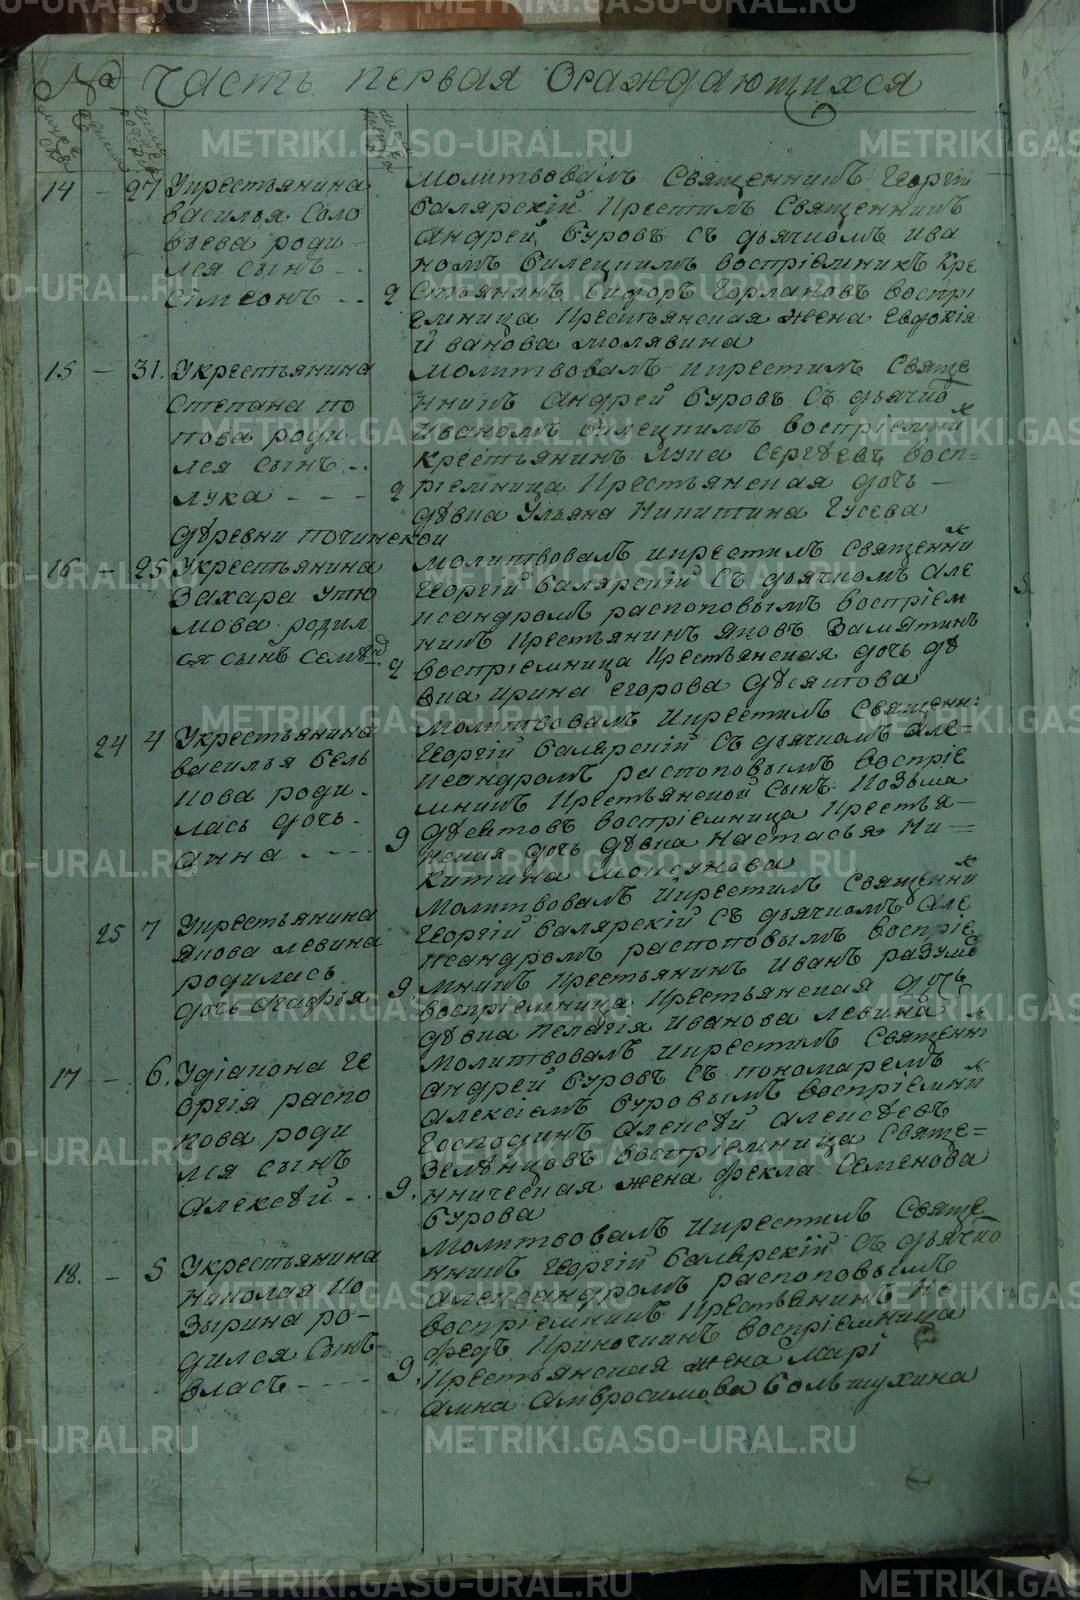 № Часть первая Ораждающихся
14 - 27 Укрестьянина
Василья Соло
вьева роди
лся сынъ
Сімеонъ - - 9
Молитвовалъ Священникъ Георгій
Балярскій Крестилъ Священникъ
Андрей Буровъ съ дьячкомъ Ива
номъ Билецкимъ воспріемникъ Кре
стьянинъ Сидоръ Горлановъ воспрі
емница Крестьянская жена Евдокія
Иванова Молявина
15 - 31. Укрестьянина
Степана По
пова роди
лся сынъ - -
Лука - - - 9
Молитвовалъ и крестилъ Свяще
нникъ Андрей Буровъ съ дьячко
Иваномъ Билецкимъ воспріемни
Крестьянинъ Лука Сергѣевъ восп=
ріемница Крестьянская дочь -
дѣвка Ульяна Никитина Гусева
дѣревни Починской
16 - 25 Укрестьянина
Захара Утю
мова родил
ся сынъ Семѣ 9
Молитвовалъ и крестилъ Священни
Георгій Балярскій съ дьячкомъ Але
ксандромъ Распоповымъ воспріем
никъ Крестьянинъ Яковъ Замятинъ
воспріемница Крестьянская дочь дѣ
вка Ирина Егорова Дѣсятова
24 4 Укрестьянина
Василья Бель
кова роди -
лась дочь -
Анна - - - 9
Молитвовалъ и крестилъ Священн:
Георгій Балярскій съ дьячкомъ Але=
ксандромъ Распоповымъ воспріе
мникъ Крестьянской сынъ Козьма
воспріемница Крестья-
нская дочь дѣвка Настасья Ни=
китина
25 7 Укрестьянина
Якова Левина
родилась
дочь Агафья 9
Молитвовалъ и крестилъ Священни
Георгій Балярскій съ дьячкомъ Але
ксандромъ Распоповымъ воспріе
мникъ Крестьянинъ Иванъ
воспріемница Крестьянская дочь
дѣвка Пелагія Иванова Левина
17 - 6. Удіакона Ге
оргія Распо
пова роди
лся сынъ
Алексѣй - . 9.
Молитвовалъ и крестилъ Священни
Андрей Буровъ съ пономаремъ
Алексіемъ Буровымъ воспріемни
Господинъ Алексѣй Алексѣевъ
воспріемница Свяще=
нническая жена Фекла Семенова
Бурова
18. - 5 Укрестьянина
Николая Ко
зырина ро-
дился сынъ
Власъ - - - - 9.
Молитвовалъ и крестилъ Свяще
нникъ Георгій Балярскій съ дьячко
Александромъ Распоповымъ
воспріемникъ Крестьянинъ Не
федъ воспріемница
Крестьянская жена Марі
амна Амвросимова Большухина
METRIKI.GASO-URAL.RU